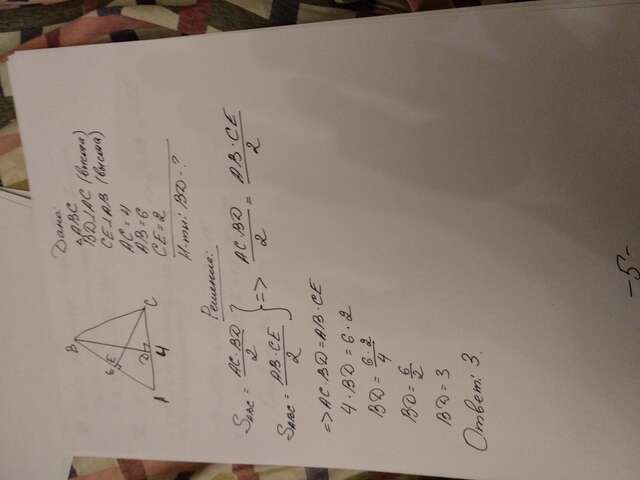 B
6 E
D
A 4 C
Дано:
△ABC
BD⊥AC (высота)
CE⊥AB (высота)
AC = 4
AB = 6
CE = 2
Н-ти: BD - ?
Решение:
S_ABC = AC·BD/2
S_ABC = AB·CE/2
} => AC·BD/2 = AB·CE/2
=> AC·BD = AB·CE
4·BD = 6·2
BD = 6·2/4
BD = 6/2
BD = 3
Ответ: 3.
-5-